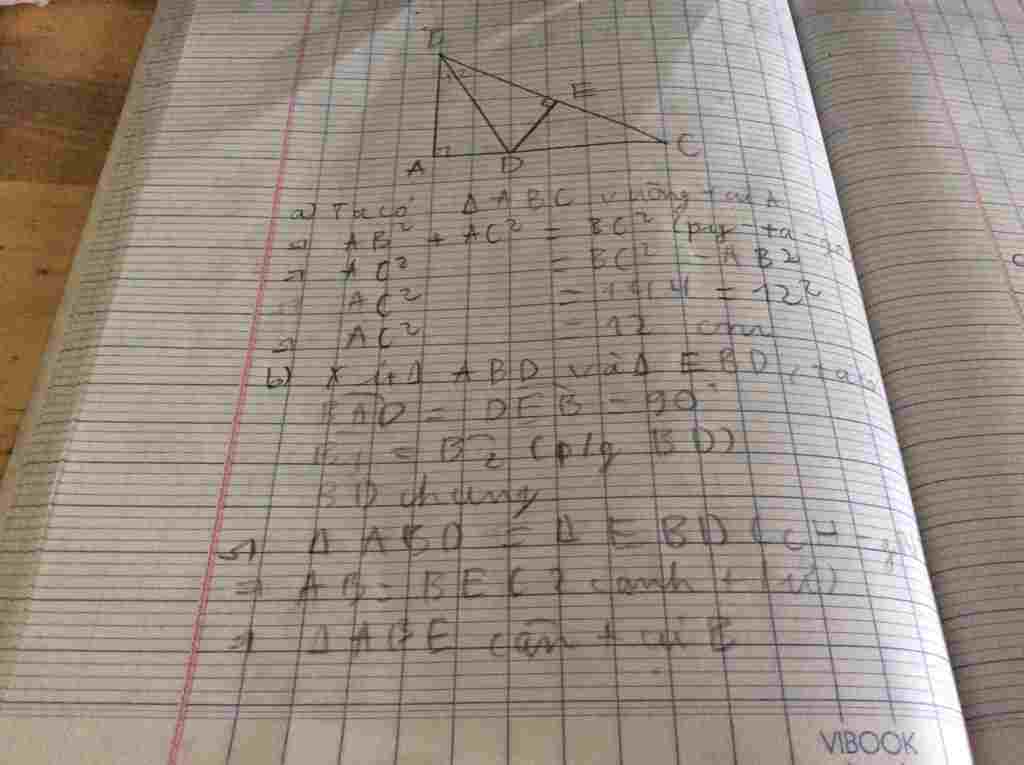 B
E
A D C
a) Ta có Δ ABC vuông tại A
⇒ AB² + AC² = BC² (py-ta-go
⇒ AC² = BC² - AB²
⇒ AC² = 144 = 12²
⇒ AC² = 12 cm
b) Xét Δ ABD và Δ EBD, ta
BAD = DEB = 90°
B1 = B2 (p/g BD)
BD chung
⇒ Δ ABD = Δ EBD (CH-
⇒ AB = BE (2 cạnh
⇒ Δ ABE cân tại B
VIBOOK